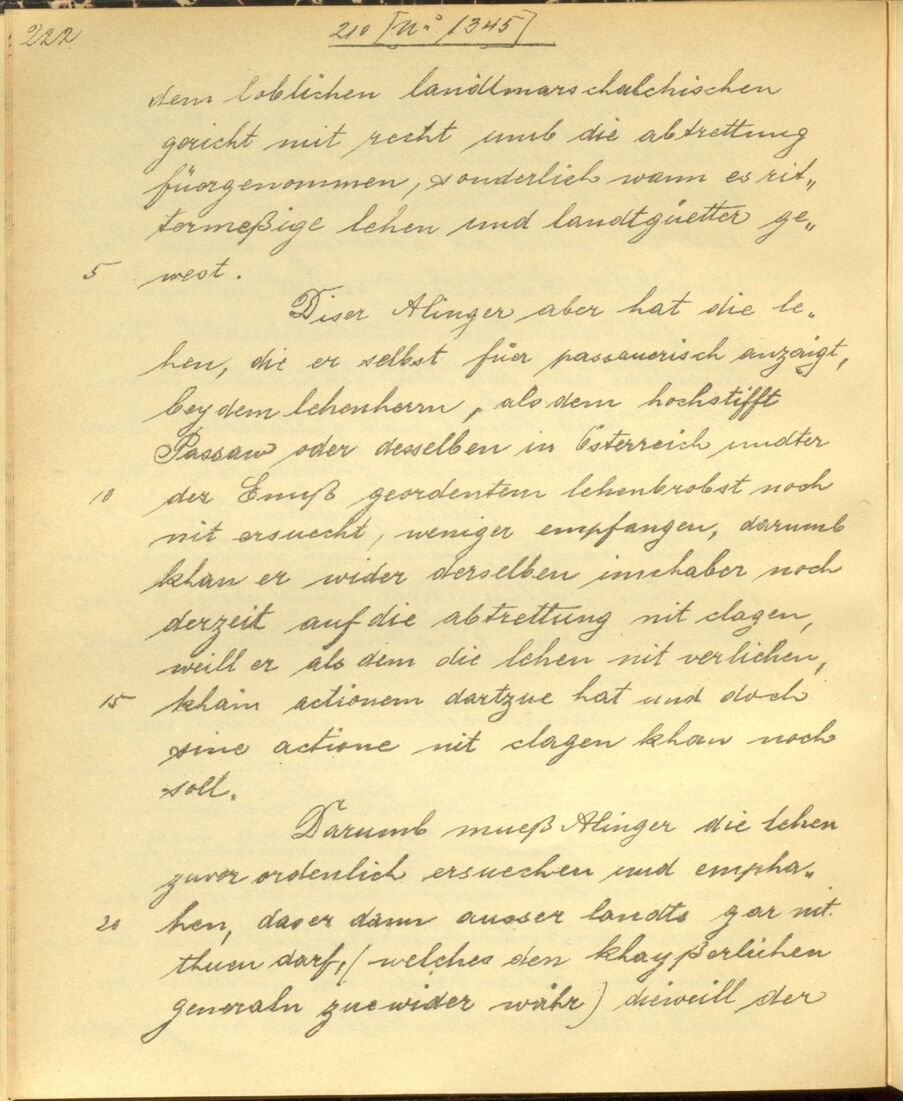 222
210 [No 1345]
dem loblichen landtmarschalchischen
gericht mit recht umb die abtrettung
füergenommen, sonderlich wann es rit„
termeßige lehen und landtgüetter ge„
5 west.
Diser Alinger aber hat die le„
hen, die er selbst für passauerisch anzaigt,
bey dem lehenherrn, als dem hochstifft
Passaw oder desselben in Österreich undter
10 der Ennß geordentem lehenbrobst noch
nit ersuecht, weniger empfangen, darumb
khan er wider derselben innhaber noch
derzeit auf die abtrettung nit clagen,
weill er als dem die lehen nit verlichen,
15 khain actionem dartzue hat und doch
sine actione nit clagen khan noch
soll.
Darumb mueß Alinger die lehen
zuvor ordenlich ersuechen und empha„
20 hen, das er dann ausser landts gar nit
thuen darf, (welches den khayßerlichen
generaln zuewider währ) dieweill der